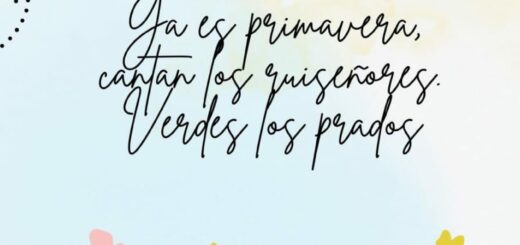 Ya es primavera,
cantan los ruiseñores.
Verdes los prados